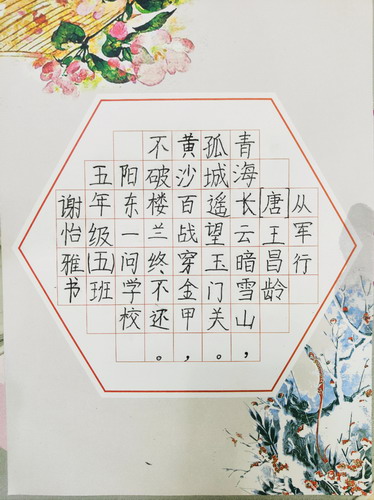 从军行
[唐]王昌龄
青海长云暗雪山，
孤城遥望玉门关。
黄沙百战穿金甲，
不破楼兰终不还。
阳东一问学校
五年级(五)班
谢怡雅书